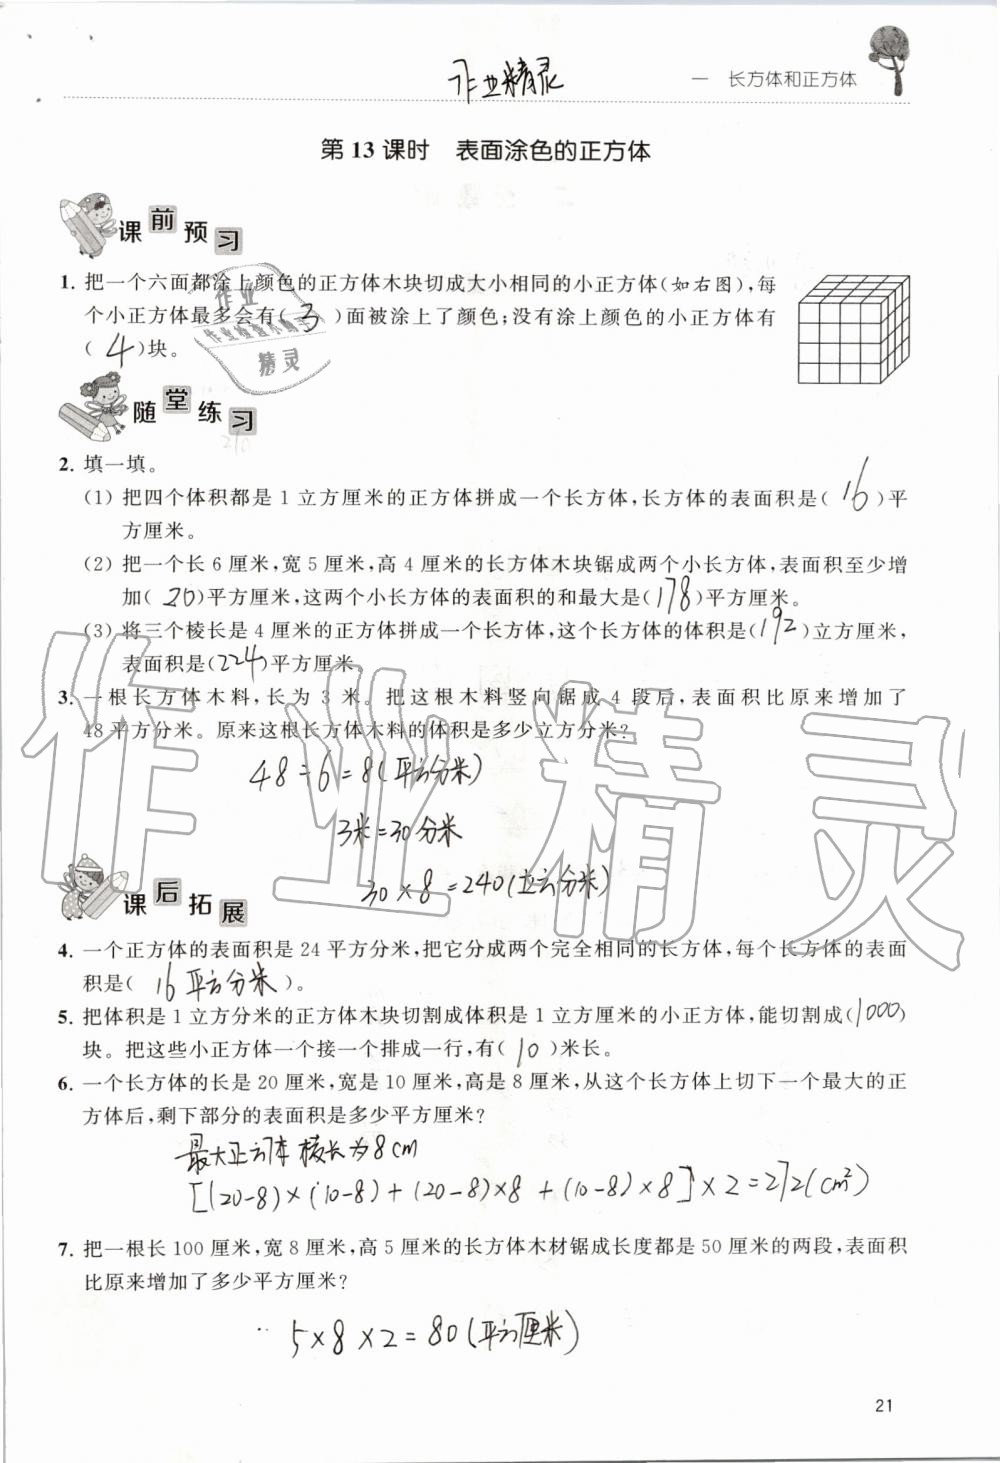 作业精灵
一 长方体和正方体
第 13 课时 表面涂色的正方体
课前预习
1. 把一个六面都涂上颜色的正方体木块切成大小相同的小正方体(如右图),每
个小正方体最多会有( 3 )面被涂上了颜色;没有涂上颜色的小正方体有
( 4 )块。
作业
作业检查小助手
精灵
随堂练习
2. 填一填。
(1) 把四个体积都是 1 立方厘米的正方体拼成一个长方体,长方体的表面积是( 16 )平
方厘米。
(2) 把一个长 6 厘米,宽 5 厘米,高 4 厘米的长方体木块锯成两个小长方体,表面积至少增
加( 20 )平方厘米,这两个小长方体的表面积的和最大是( 178 )平方厘米。
(3) 将三个棱长是 4 厘米的正方体拼成一个长方体,这个长方体的体积是( 192 )立方厘米,
表面积是( 224 )平方厘米。
3. 一根长方体木料,长为 3 米。把这根木料竖向锯成 4 段后,表面积比原来增加了
48 平方分米。原来这根长方体木料的体积是多少立方分米?
48÷6=8(平方分米)
3米=30分米
30×8=240(立方分米)
作业精灵
课后拓展
4. 一个正方体的表面积是 24 平方分米,把它分成两个完全相同的长方体,每个长方体的表面
积是( 16平方分米 )。
5. 把体积是 1 立方分米的正方体木块切割成体积是 1 立方厘米的小正方体,能切割成( 1000 )
块。把这些小正方体一个接一个排成一行,有( 10 )米长。
6. 一个长方体的长是 20 厘米,宽是 10 厘米,高是 8 厘米,从这个长方体上切下一个最大的正
方体后,剩下部分的表面积是多少平方厘米?
最大正方体棱长为8cm
[(20-8)×(10-8)+(20-8)×8+(10-8)×8]×2=272(cm²)
7. 把一根长 100 厘米,宽 8 厘米,高 5 厘米的长方体木材锯成长度都是 50 厘米的两段,表面积
比原来增加了多少平方厘米?
5×8×2=80(平方厘米)
21